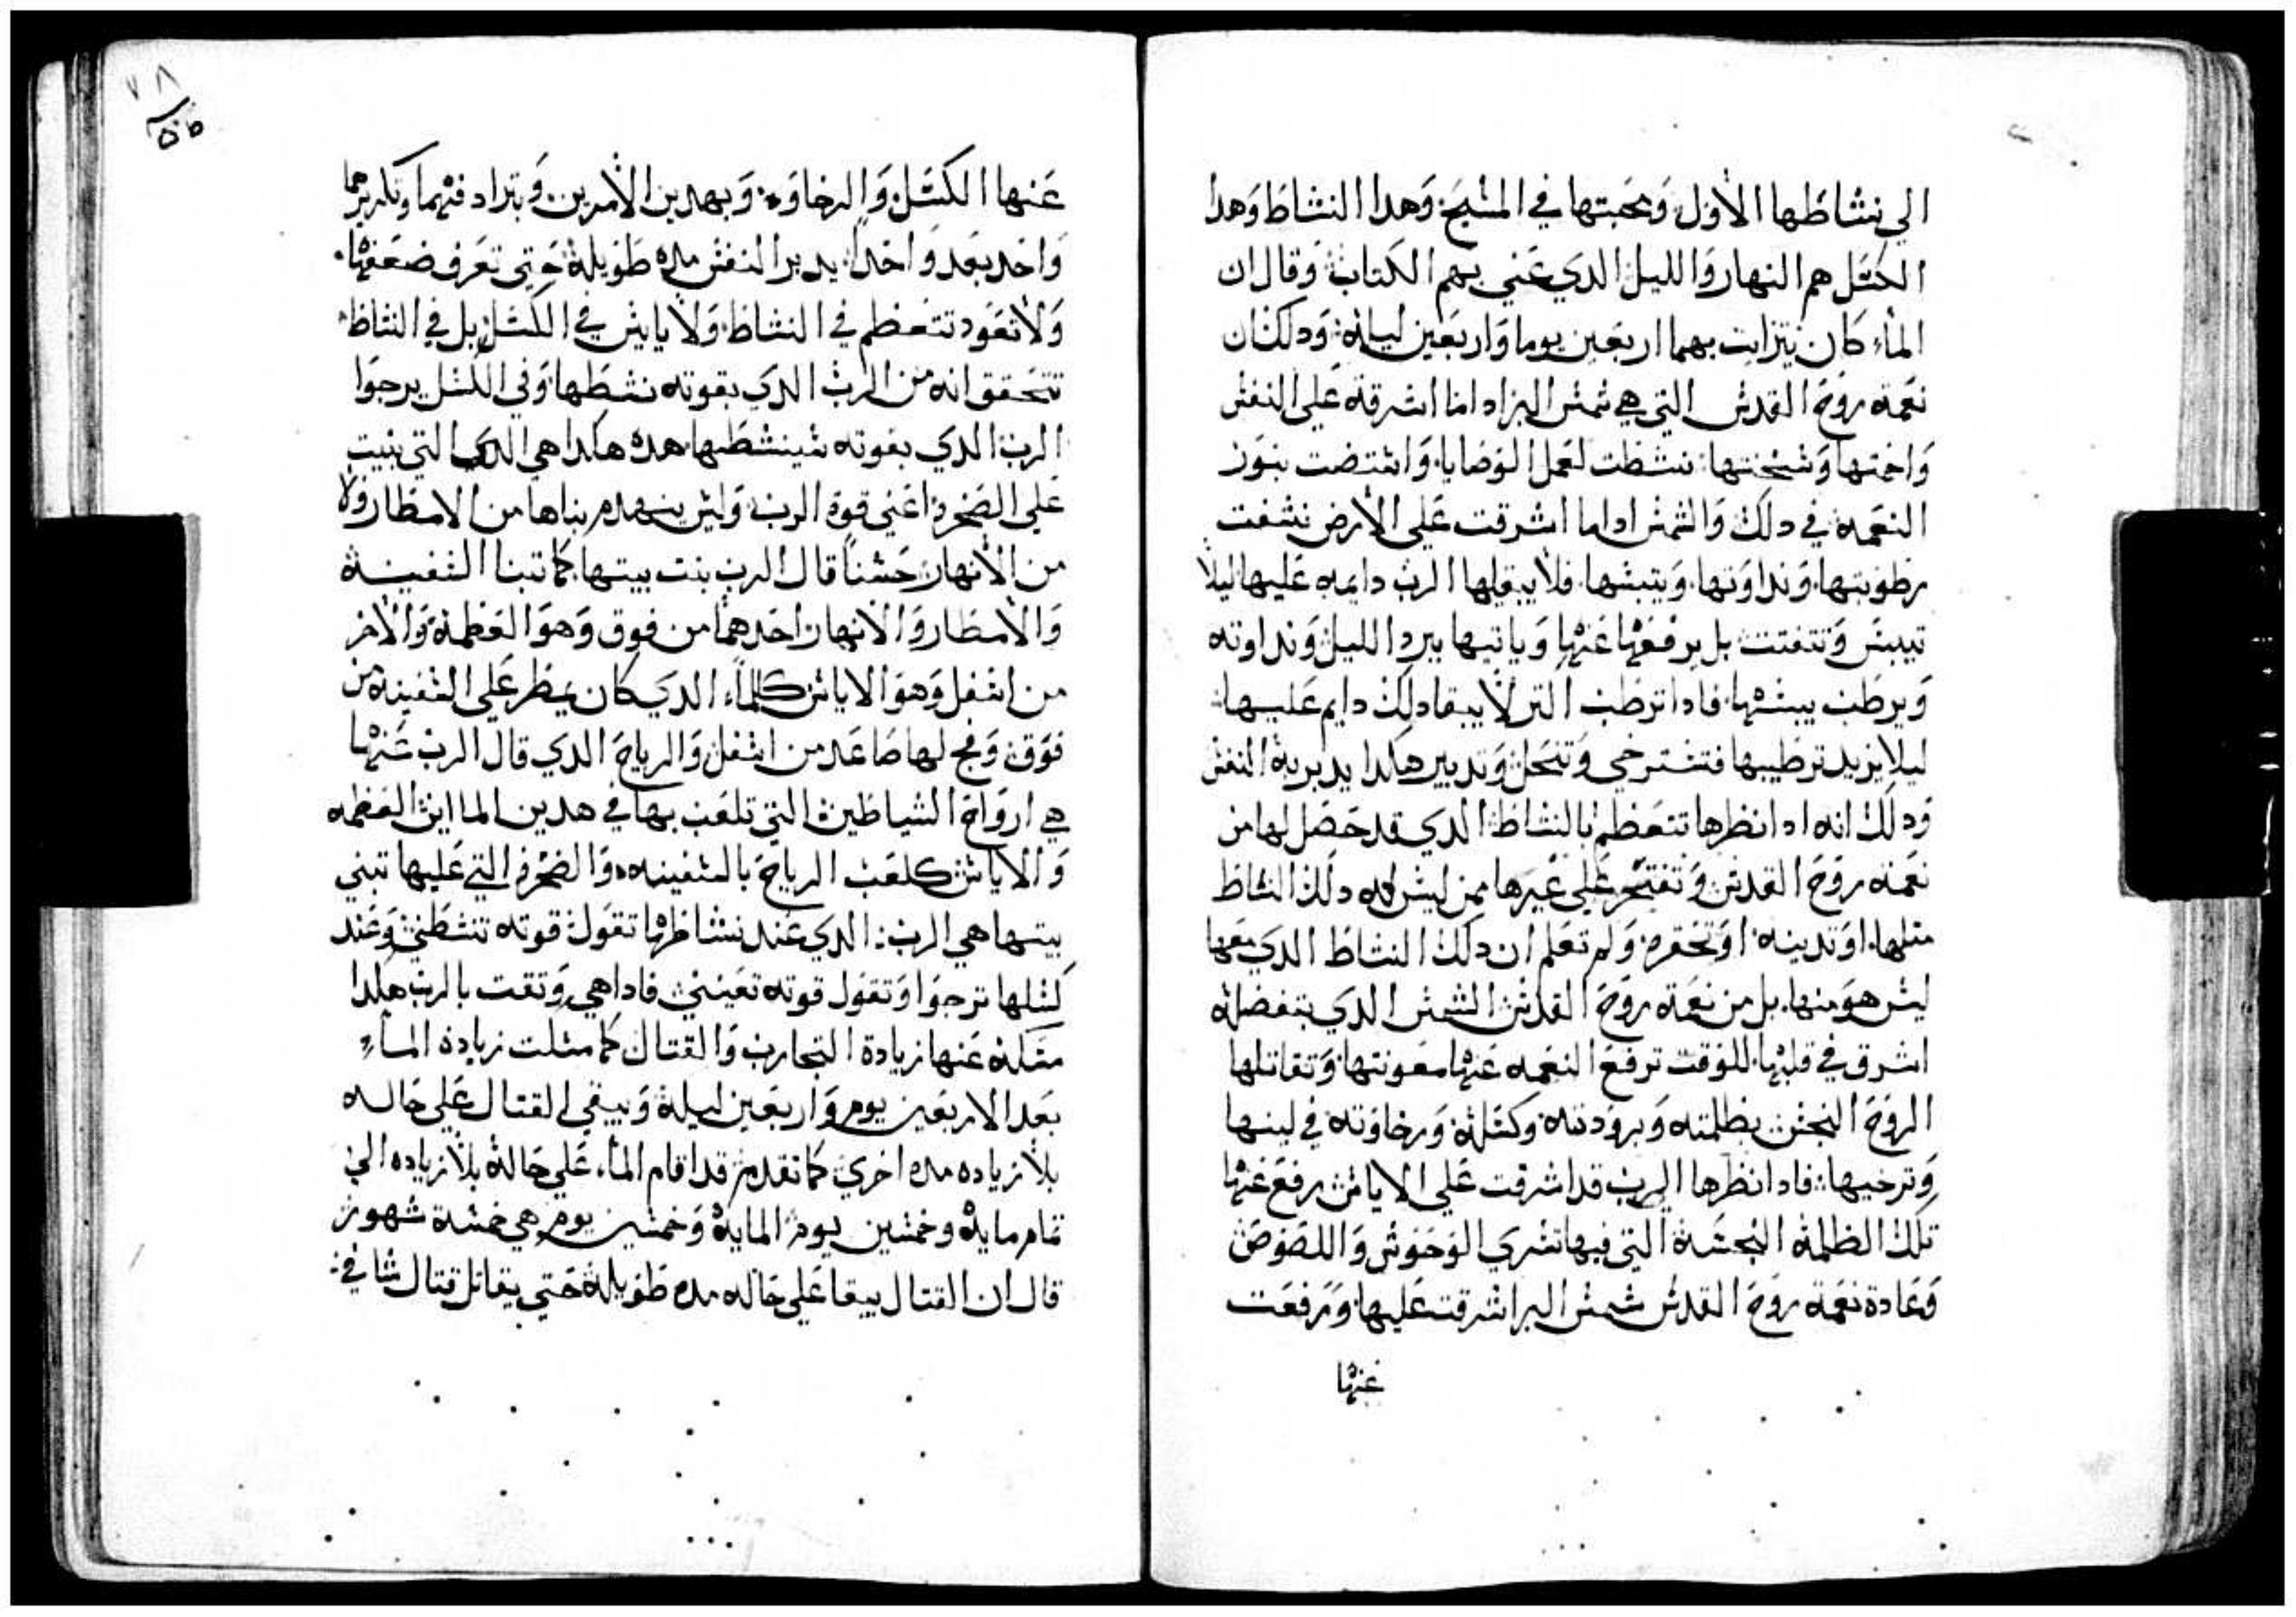 الي نشاطها الاول ومحبتها في المسيح وهدا النشاط وهدا
الكسل هم النهار والليل الدي عني بهم الكتاب وقال ان
الماء كان يتزايت بهما اربعين يوما واربعين ليله ودلك ان
نعمة روح القدس التي هي شمس البر اداما اشرقة علي النفس
واحمتها وسخنتها نشطت لعمل الوصايا واستضت بنور
النعمه في دلك والشمس اداما اشرقت علي الارض نشفت
رطوبتها ونداوتها ويبستها فلا يبقيها الرب دايمه عليها ليلا
تيبس وتتفتت بل يرفعها عنها وياتيها ببرد الليل ونداوته
ويرطب يبسها فادا ترطب الترلا يبقا دلك دايم عليها
ليلا يزيد ترطيبها فتسترخي وتنحل وتدبير هاكدا يدبر به النفس
ودلك انه ادا نظرها تتعظم بالنشاط الدي قد حصل لها من
نعمة روح القدس وتفتخر علي غيرها ممن ليس له دلك النشاط
مثلها او تدينه او تحقره ولم تعلم ان دلك النشاط الدي معها
ليس هو منها بل من نعمة روح القدس الشمس الدي بتفضله
اشرق في قلبها للوقت ترفع النعمه عنها معونتها وتقاتلها
الروح النجس بظلمته وبرودته وكسله ورخاوته في لينها
وترخيها فادا نظرها الرب قد اشرفت علي الاياس رفع عنها
تلك الظلمة النجسة التي فيها تسري الوحوش واللصوص
وعادة نعمة روح القدس شمس البر اشرقت عليها ورفعت
عنها
٧٨
عنها الكسل والرخاوه وبهدين الامرين وبترادفهما وتكريرهما
واحد بعد واحد يدبر النفس مده طويلة حتي تعرف ضعفها
ولا تعود تتعظم في النشاط ولا ياييس في الكسل بل في النشاط
تتحقق انه من الرب الدي بقوته نشطها وفي الكسل يرجوا
الرب الدي بقوته سينشطها هده هاكدا هي التي بنيت
علي الصخرة اعني قوة الرب وليس ينهدم بناها من الامطار ولا
من الانهار حسنا قال الرب بنت بيتها كما تبنا السفينة
والامطار والانهار احدهما من فوق وهو العظمة والاخر
من اسفل وهو الاياس كالماء الدي كان يمطر علي السفينة من
فوق صاعد من اسفل والرياح الدي قال الرب عنها
هي ارواح الشياطين التي تلعب بها في هدين الماايين العظمه
والاياس كلعب الرياح بالسفينه والصخره التي عليها تبني
بيتها هي الرب الدي عند نشاطها تقول قوته تنشطني وعند
كسلها ترجوا وتقول قوته تعينني فادا هي وتقت بالرب هكدا
عنها زيادة التجارب والقتال كما مسكت زيادة الماء
بعد الاربعين يوم واربعين ليلة ويبقي القتال علي حاله
بلا زياده مده اخري كما تقدم قد اقام الماء علي حالة بلا زياده الي
تمام ماية وخمسين يوم الماية وخمسين يوم هي خمسة شهور
قال ان القتال يبقا علي حاله مده طويلة حتي يقاتل قتال شافي